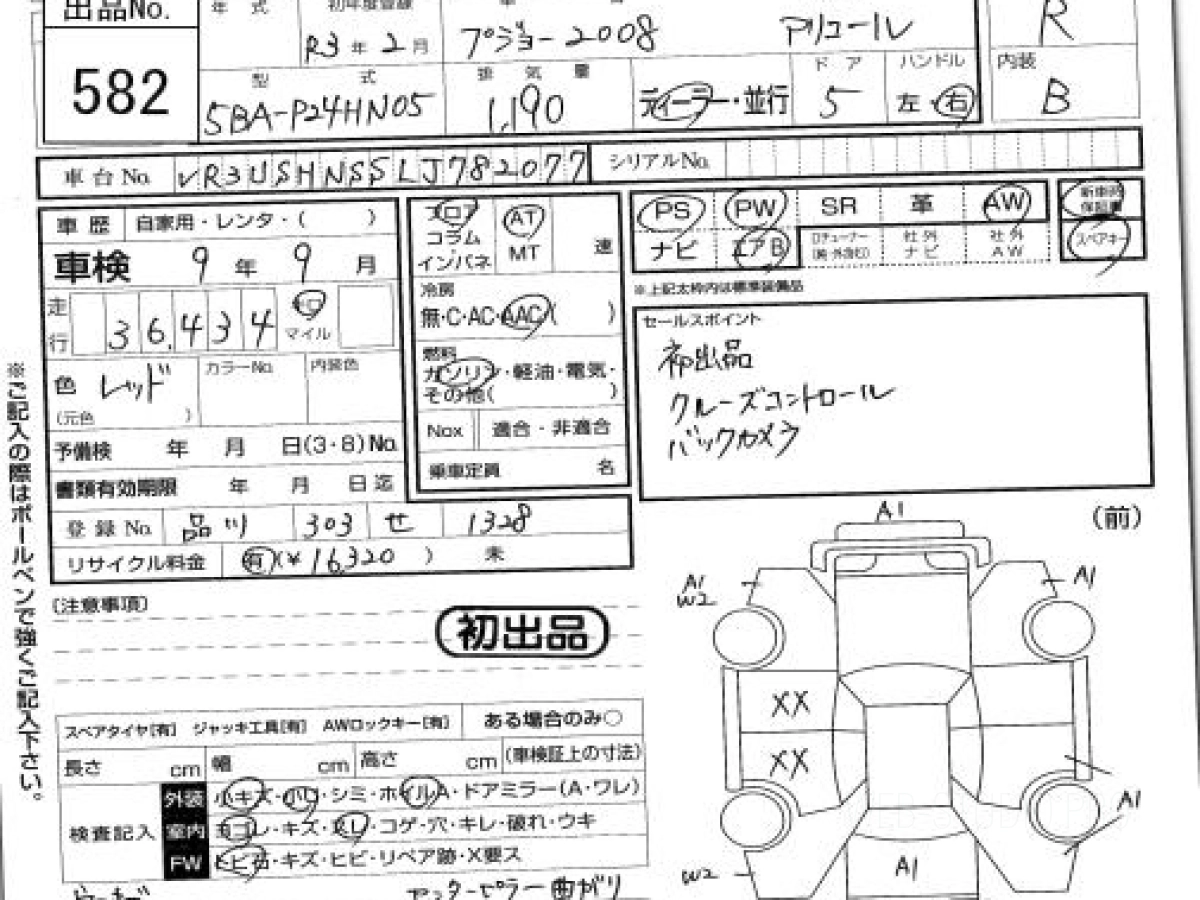 出品No. 年式 初年度登録 R
R3年2月 プジョー2008 アリュール
582 型式 排気量 ドア ハンドル 内装
5BA-P24HN05 1,190 ディーラー・並行 5 左・右 B
車台No. VR3USHNSSLJ782077 シリアルNo.
車歴 自家用・レンタ・( ) フロア AT PS PW SR 革 AW 新車時保証書
コラム・インパネ MT 速 ナビ エアB Dチューナー(純・外含む) 社外ナビ 社外AW スペアキー
車検 9年9月
※上記太枠内は標準装備品
走行 36,434 キロ マイル 冷房 無・C・AC・AAC( )
セールスポイント
初出品
クルーズコントロール
バックカメラ
色 レッド カラーNo. 内装色 燃料 ガソリン・軽油・電気・
(元色 ) その他( )
予備検 年 月 日(3・8)No. Nox 適合・非適合
書類有効期限 年 月 日迄 乗車定員 名
登録No. 品川 303 せ 1328
リサイクル料金 有(¥16,320 ) 未
※ご記入の際はボールペンで強くご記入下さい。
(前)
A1
A1 W2 A1
[注意事項]
初出品
XX
XX
A1
W2 A1
スペアタイヤ[有] ジャッキ工具[有] AWロックキー[有] ある場合のみ○
長さ cm 幅 cm 高さ cm (車検証上の寸法)
検査記入
外装 小キズ・小凹・シミ・ホイルA・ドアミラー(A・ワレ)
室内 ヨゴレ・キズ・スレ・コゲ・穴・キレ・破れ・ウキ
FW トビ石・キズ・ヒビ・リペア跡・X要ス
センターピラー曲がり